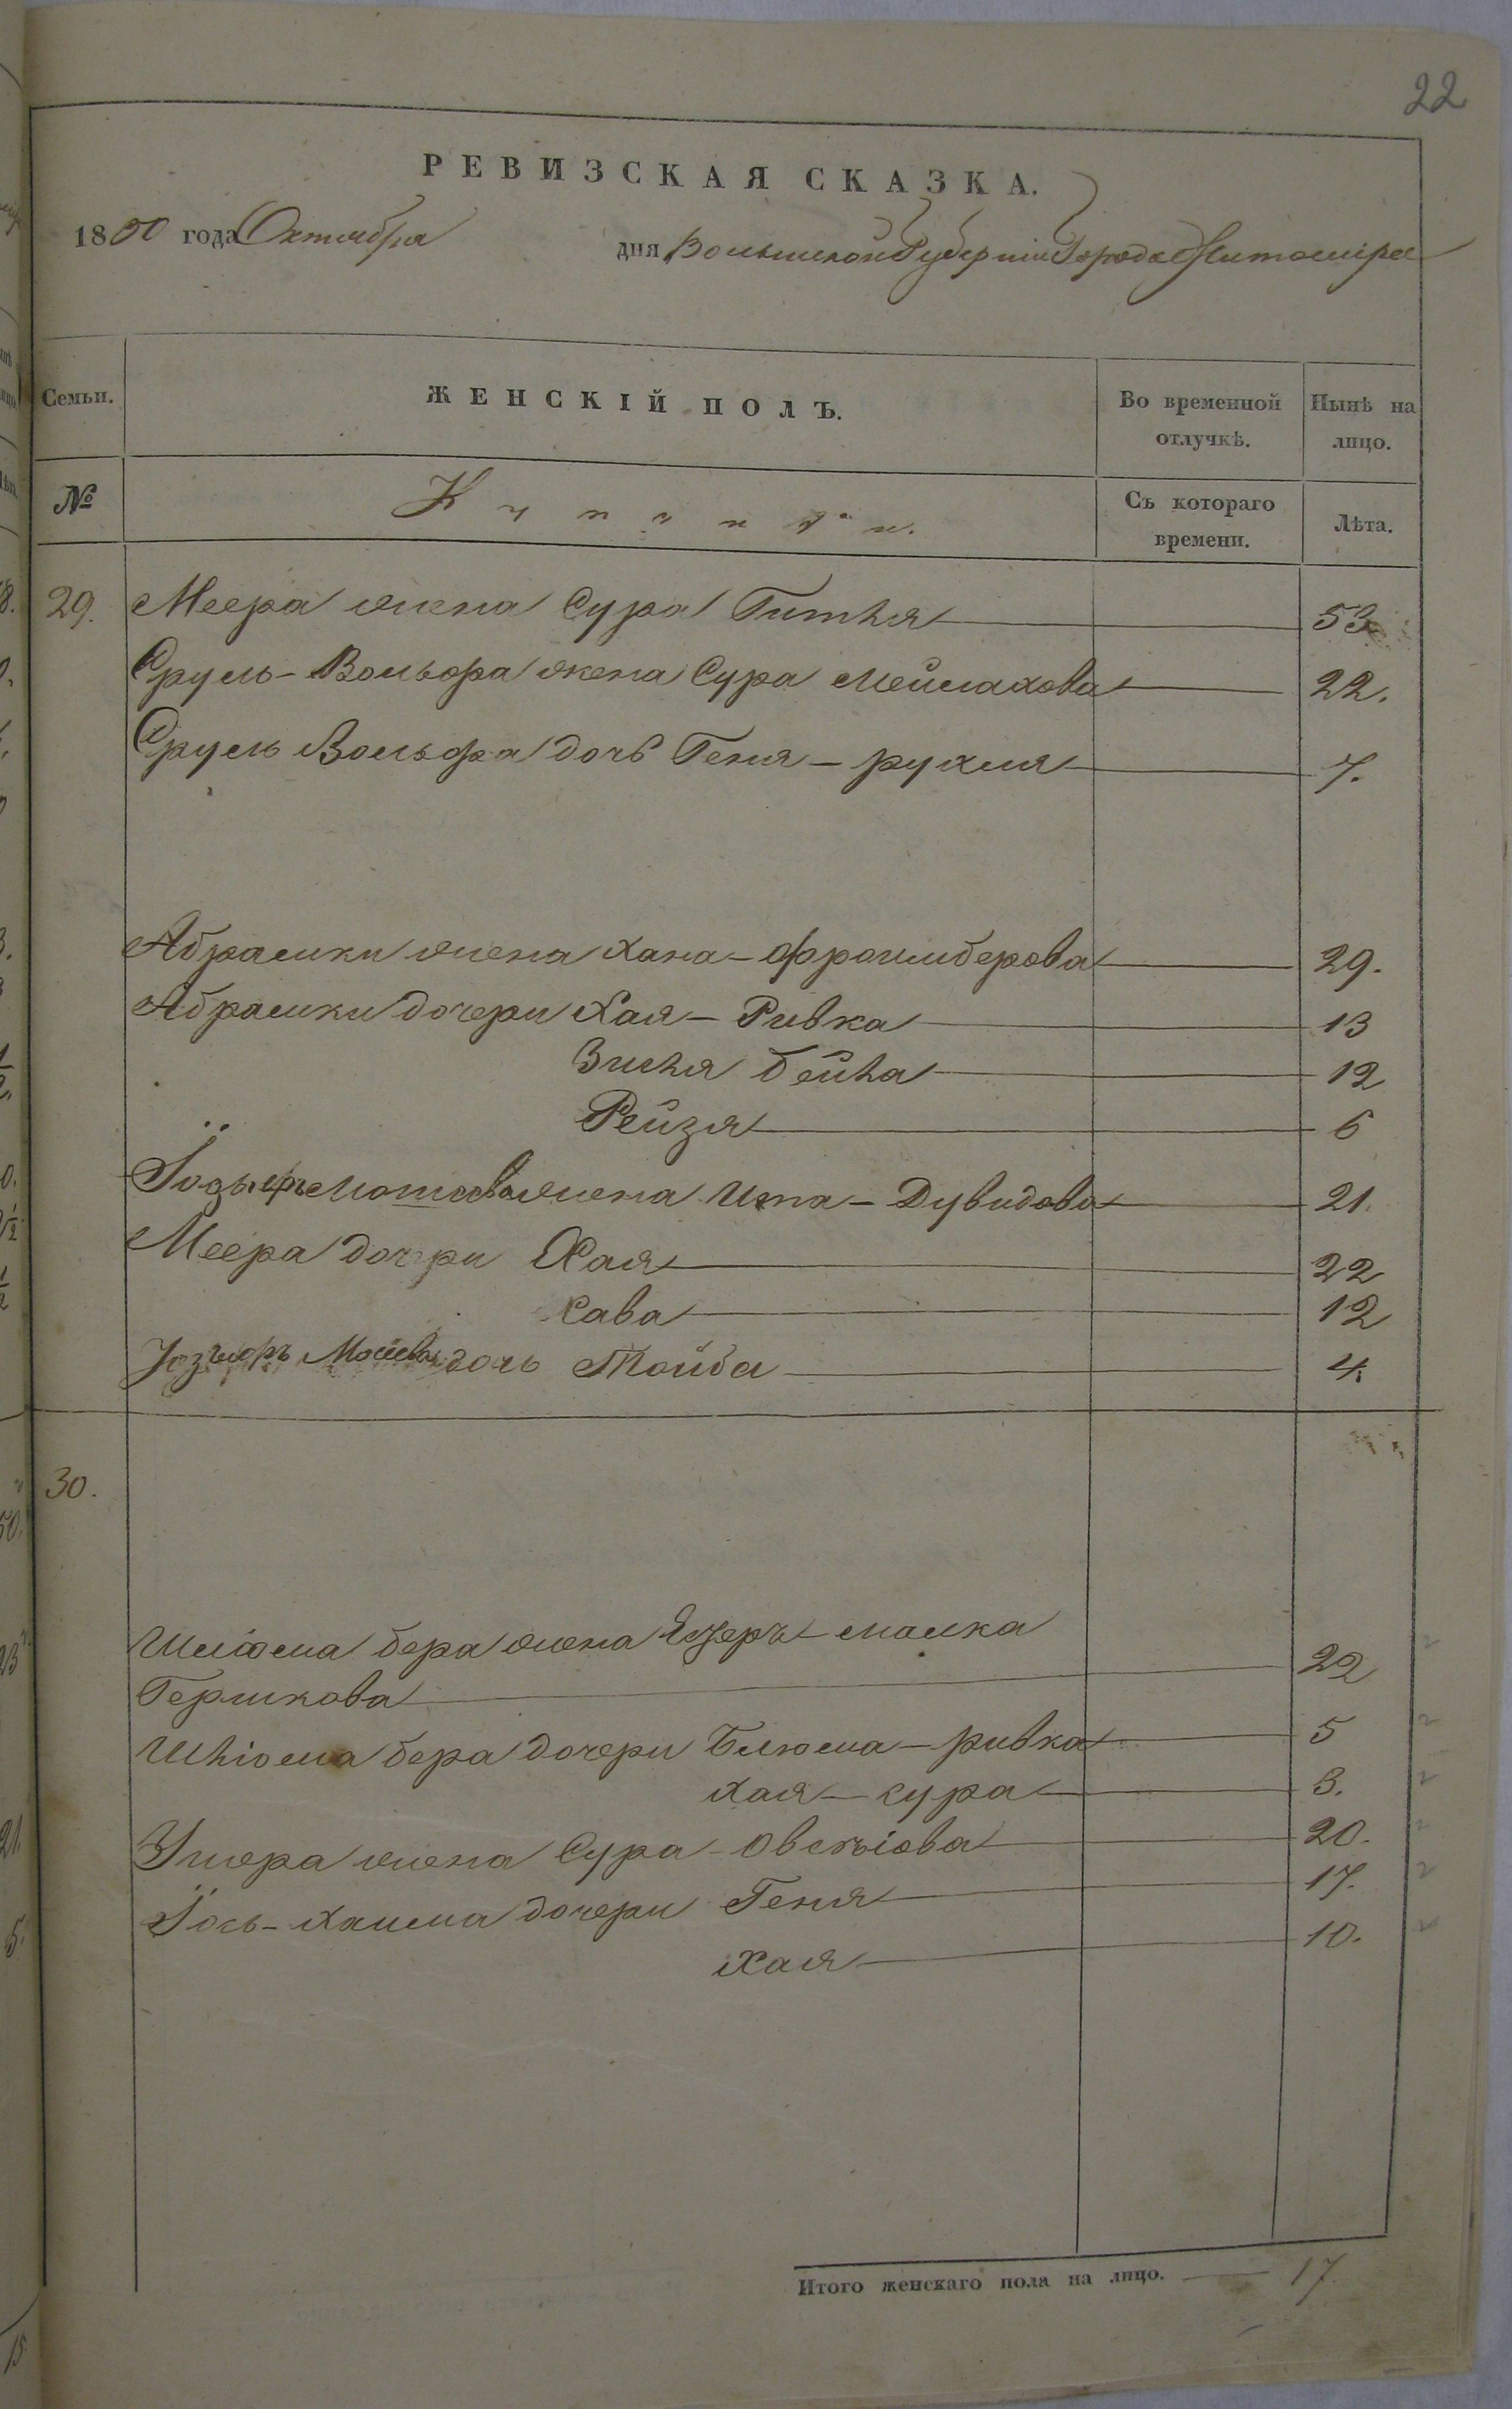 22
РЕВИЗСКАЯ СКАЗКА.
1850 года Октября дня Волынской Губернии Города Житомира
Семьи. ЖЕНСКІЙ ПОЛЪ. Во временной отлучкѣ. Нынѣ на лицо.
№ Съ котораго времени. Лѣта.
29. Меера жена Сура Гитля 53
Сруль-Вольфа жена Сура Мейлахова 22.
Сруль Вольфа дочь Геня-рухля 7.
Абрамки жена Хана-Фроимберова 29.
Абрамки дочери Хая-Ривка 13
Зисля бейла 12
Рейзя 6
жена Ита-Дувидова 21.
Меера дочери Хая 22
Сава 12
дочь Тойба 4.
30.
Шліома бера жена Эстеръ-малка
Гершкова 22
Шліома бера дочери Блюма-ривка 5
хая-сура 3.
жена Сура 20.
Іось-Хаима дочери Геня 17.
Хая 10.
Итого женскаго пола на лицо. 17